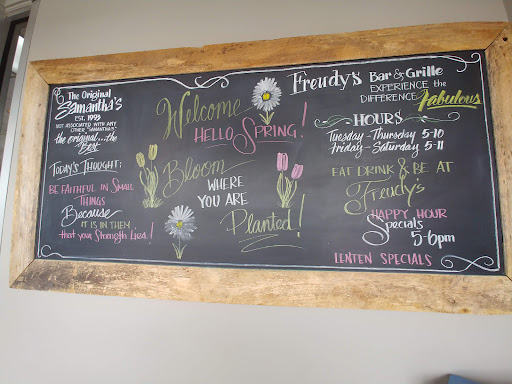 The Original
Samantha's
EST. 1993
NOT ASSOCIATED WITH ANY
OTHER "SAMANTHA'S"
the original...the
Best
TODAY'S THOUGHT:
BE FAITHFUL IN SMALL
THINGS
Because
IT IS IN THEM
that your Strength Lies!
Welcome
HELLO SPRING!
Bloom
WHERE
YOU ARE
Planted!
Freudy's BAR & GRILLE
EXPERIENCE the
DIFFERENCE Fabulous
HOURS
Tuesday - Thursday 5-10
Friday - Saturday 5-11
EAT DRINK & BE AT
Freudy's
HAPPY HOUR
Specials
5-6pm
LENTEN SPECIALS